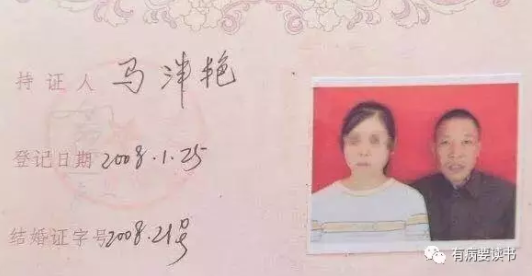 持证人 马泮艳
登记日期 2008.1.25
结婚证字号 2008.21号
有病要读书